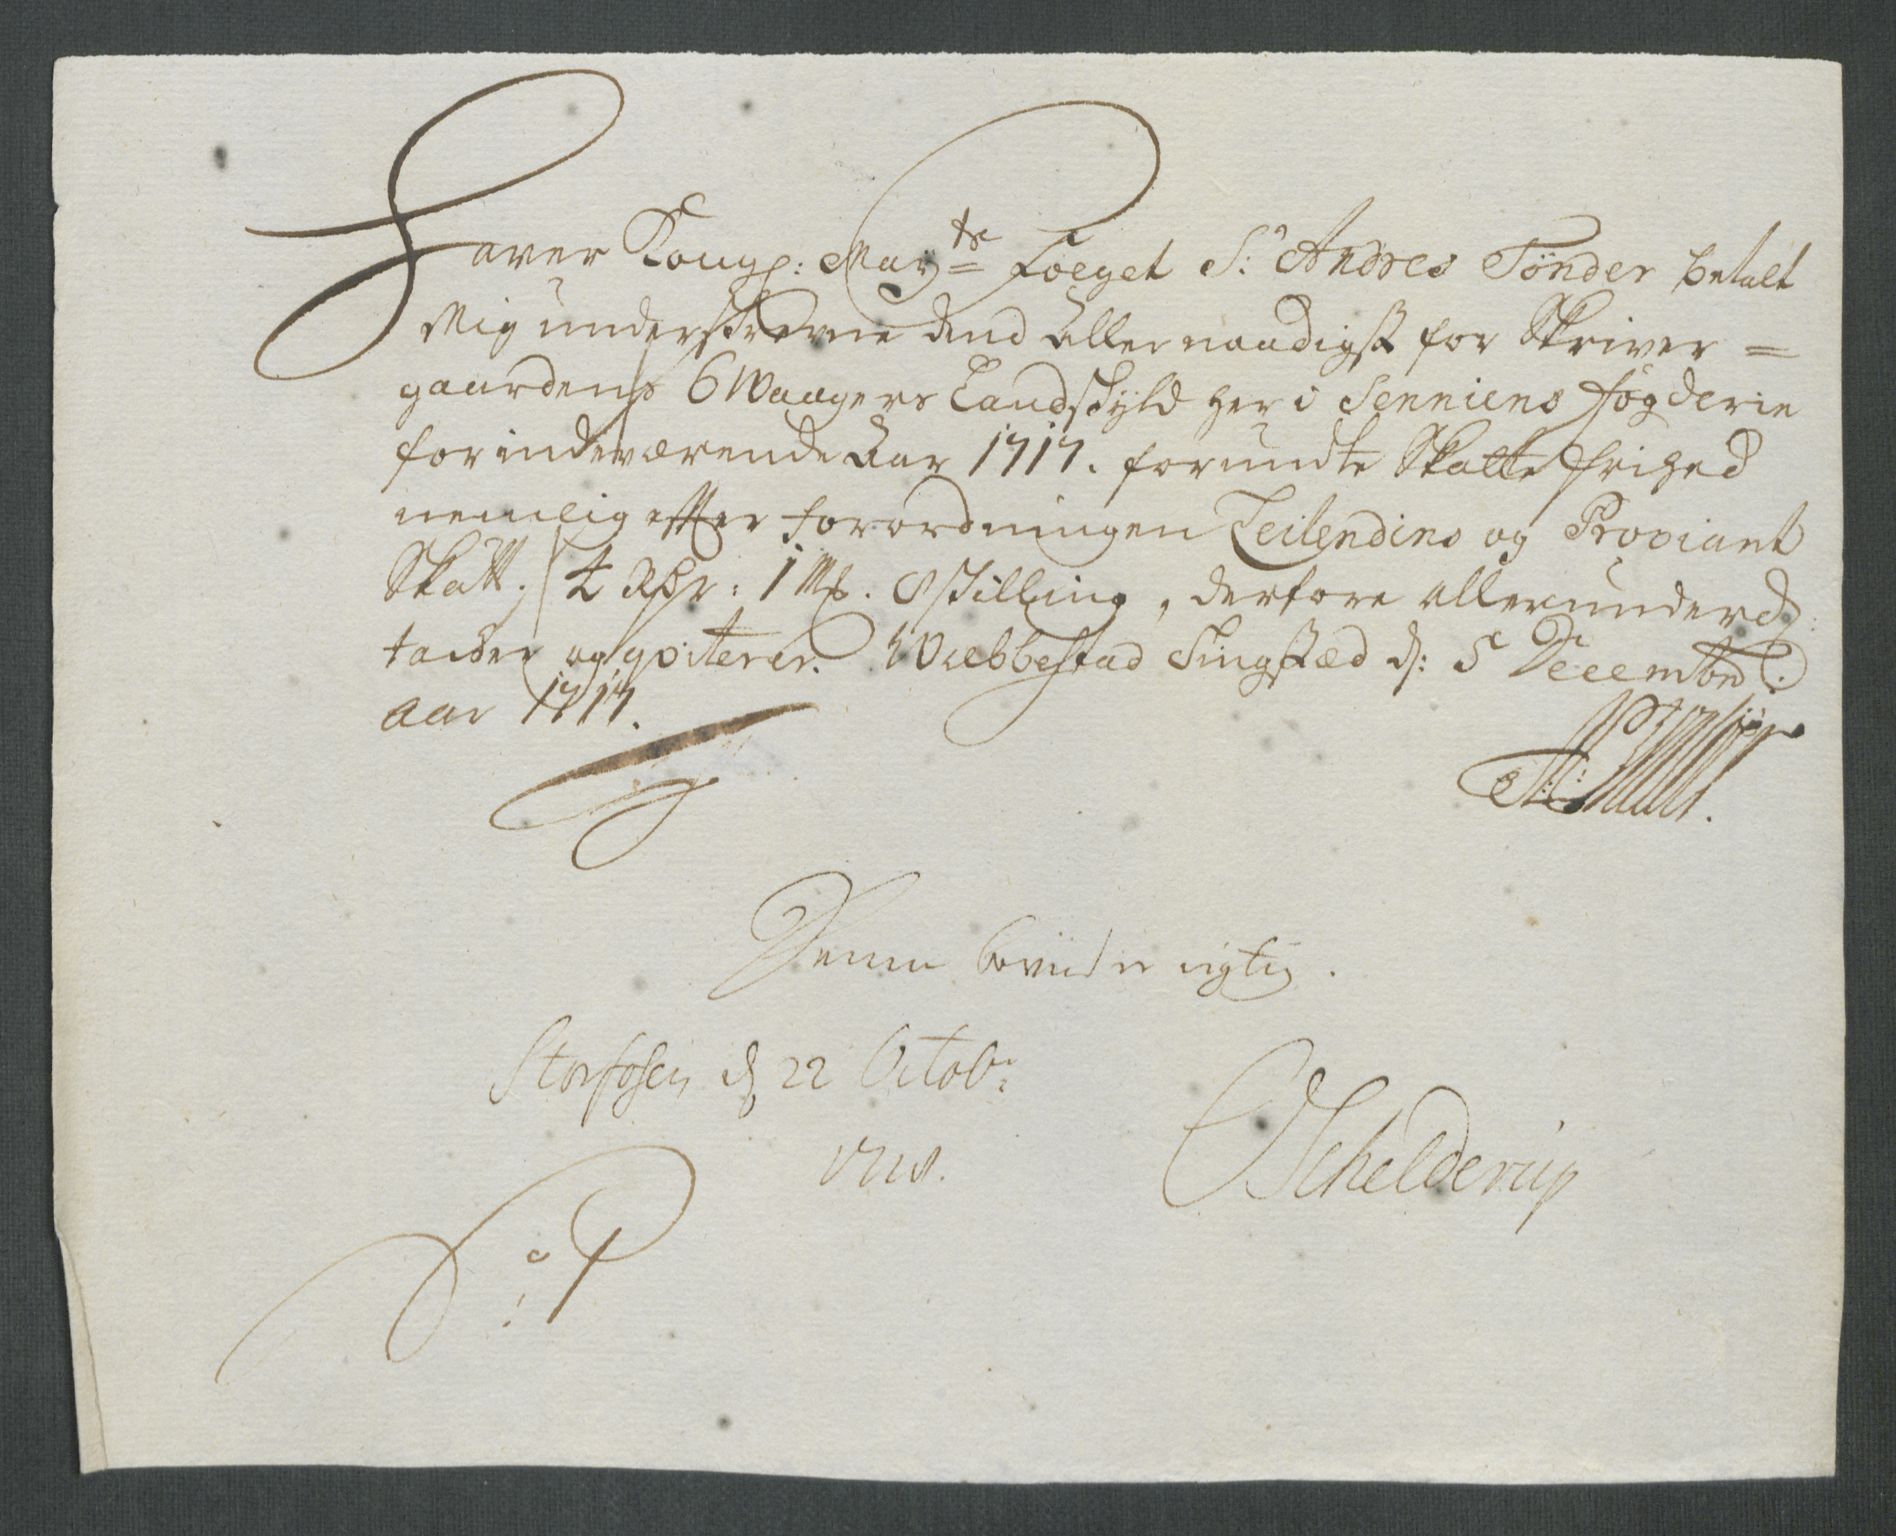 Haver Kongl: May:ts Foeget Sr: Andres Tönder betalt
Mig underskrevne dend Aller naadigst for Skriver =
gaardens 6 Waagers Landskyld her i Senniens fögderie
for indeværende Aar 1717. forundte Skatte frihed
nemlig efter forordningen Leilendins og Proviant
Skatt; 4 Rdr: 1 Mk. 8 skilling, derfore allerunderd:
tacker og qviterer. Wæbbestad Tingstæd d: 5 Decembr:
Aar 1717.
Denne bevind er rigtig.
Storfosen d 22 Octobr:
1718.
Schelderup